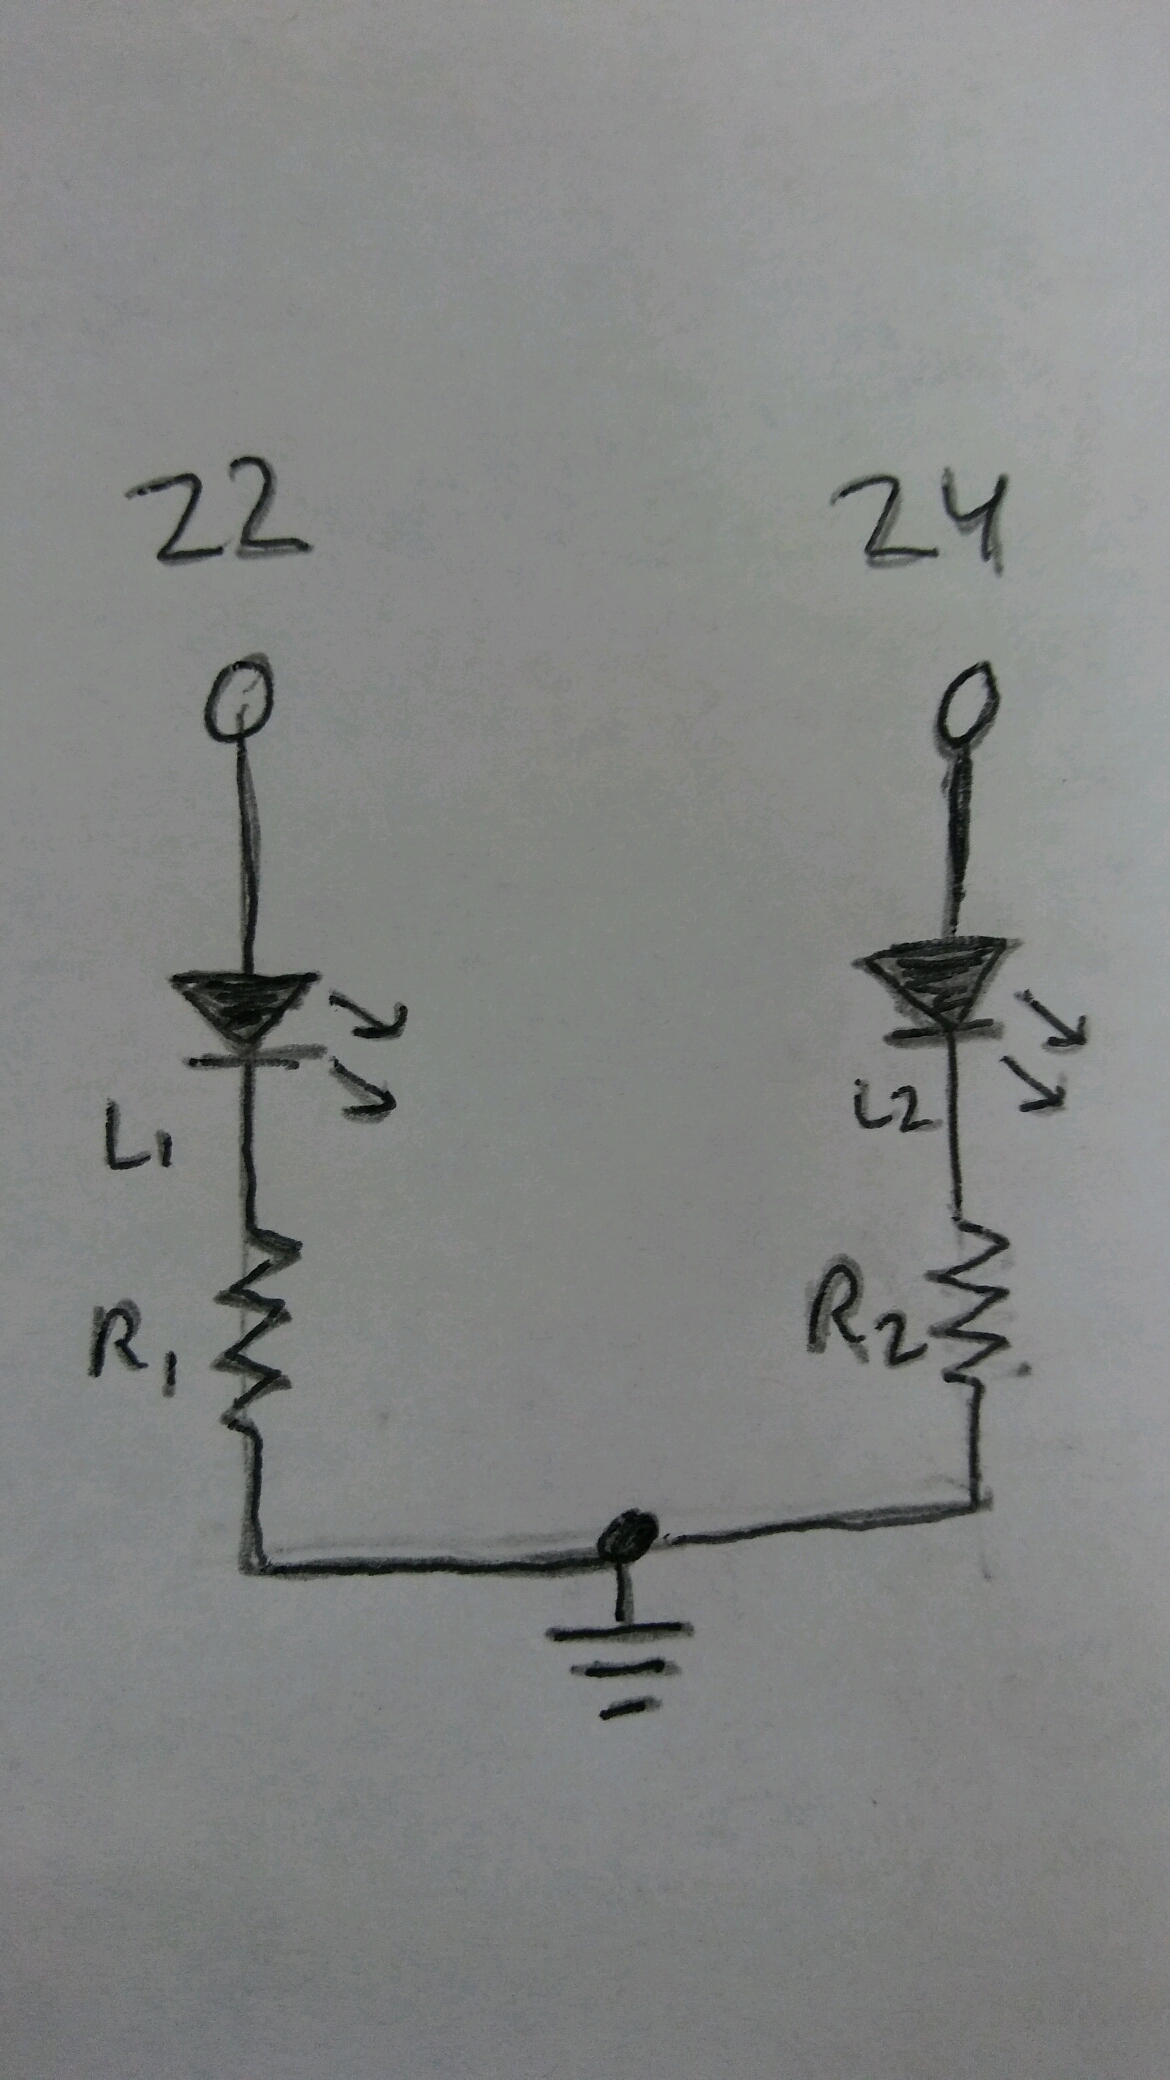 22 24
L1 L2
R1 R2